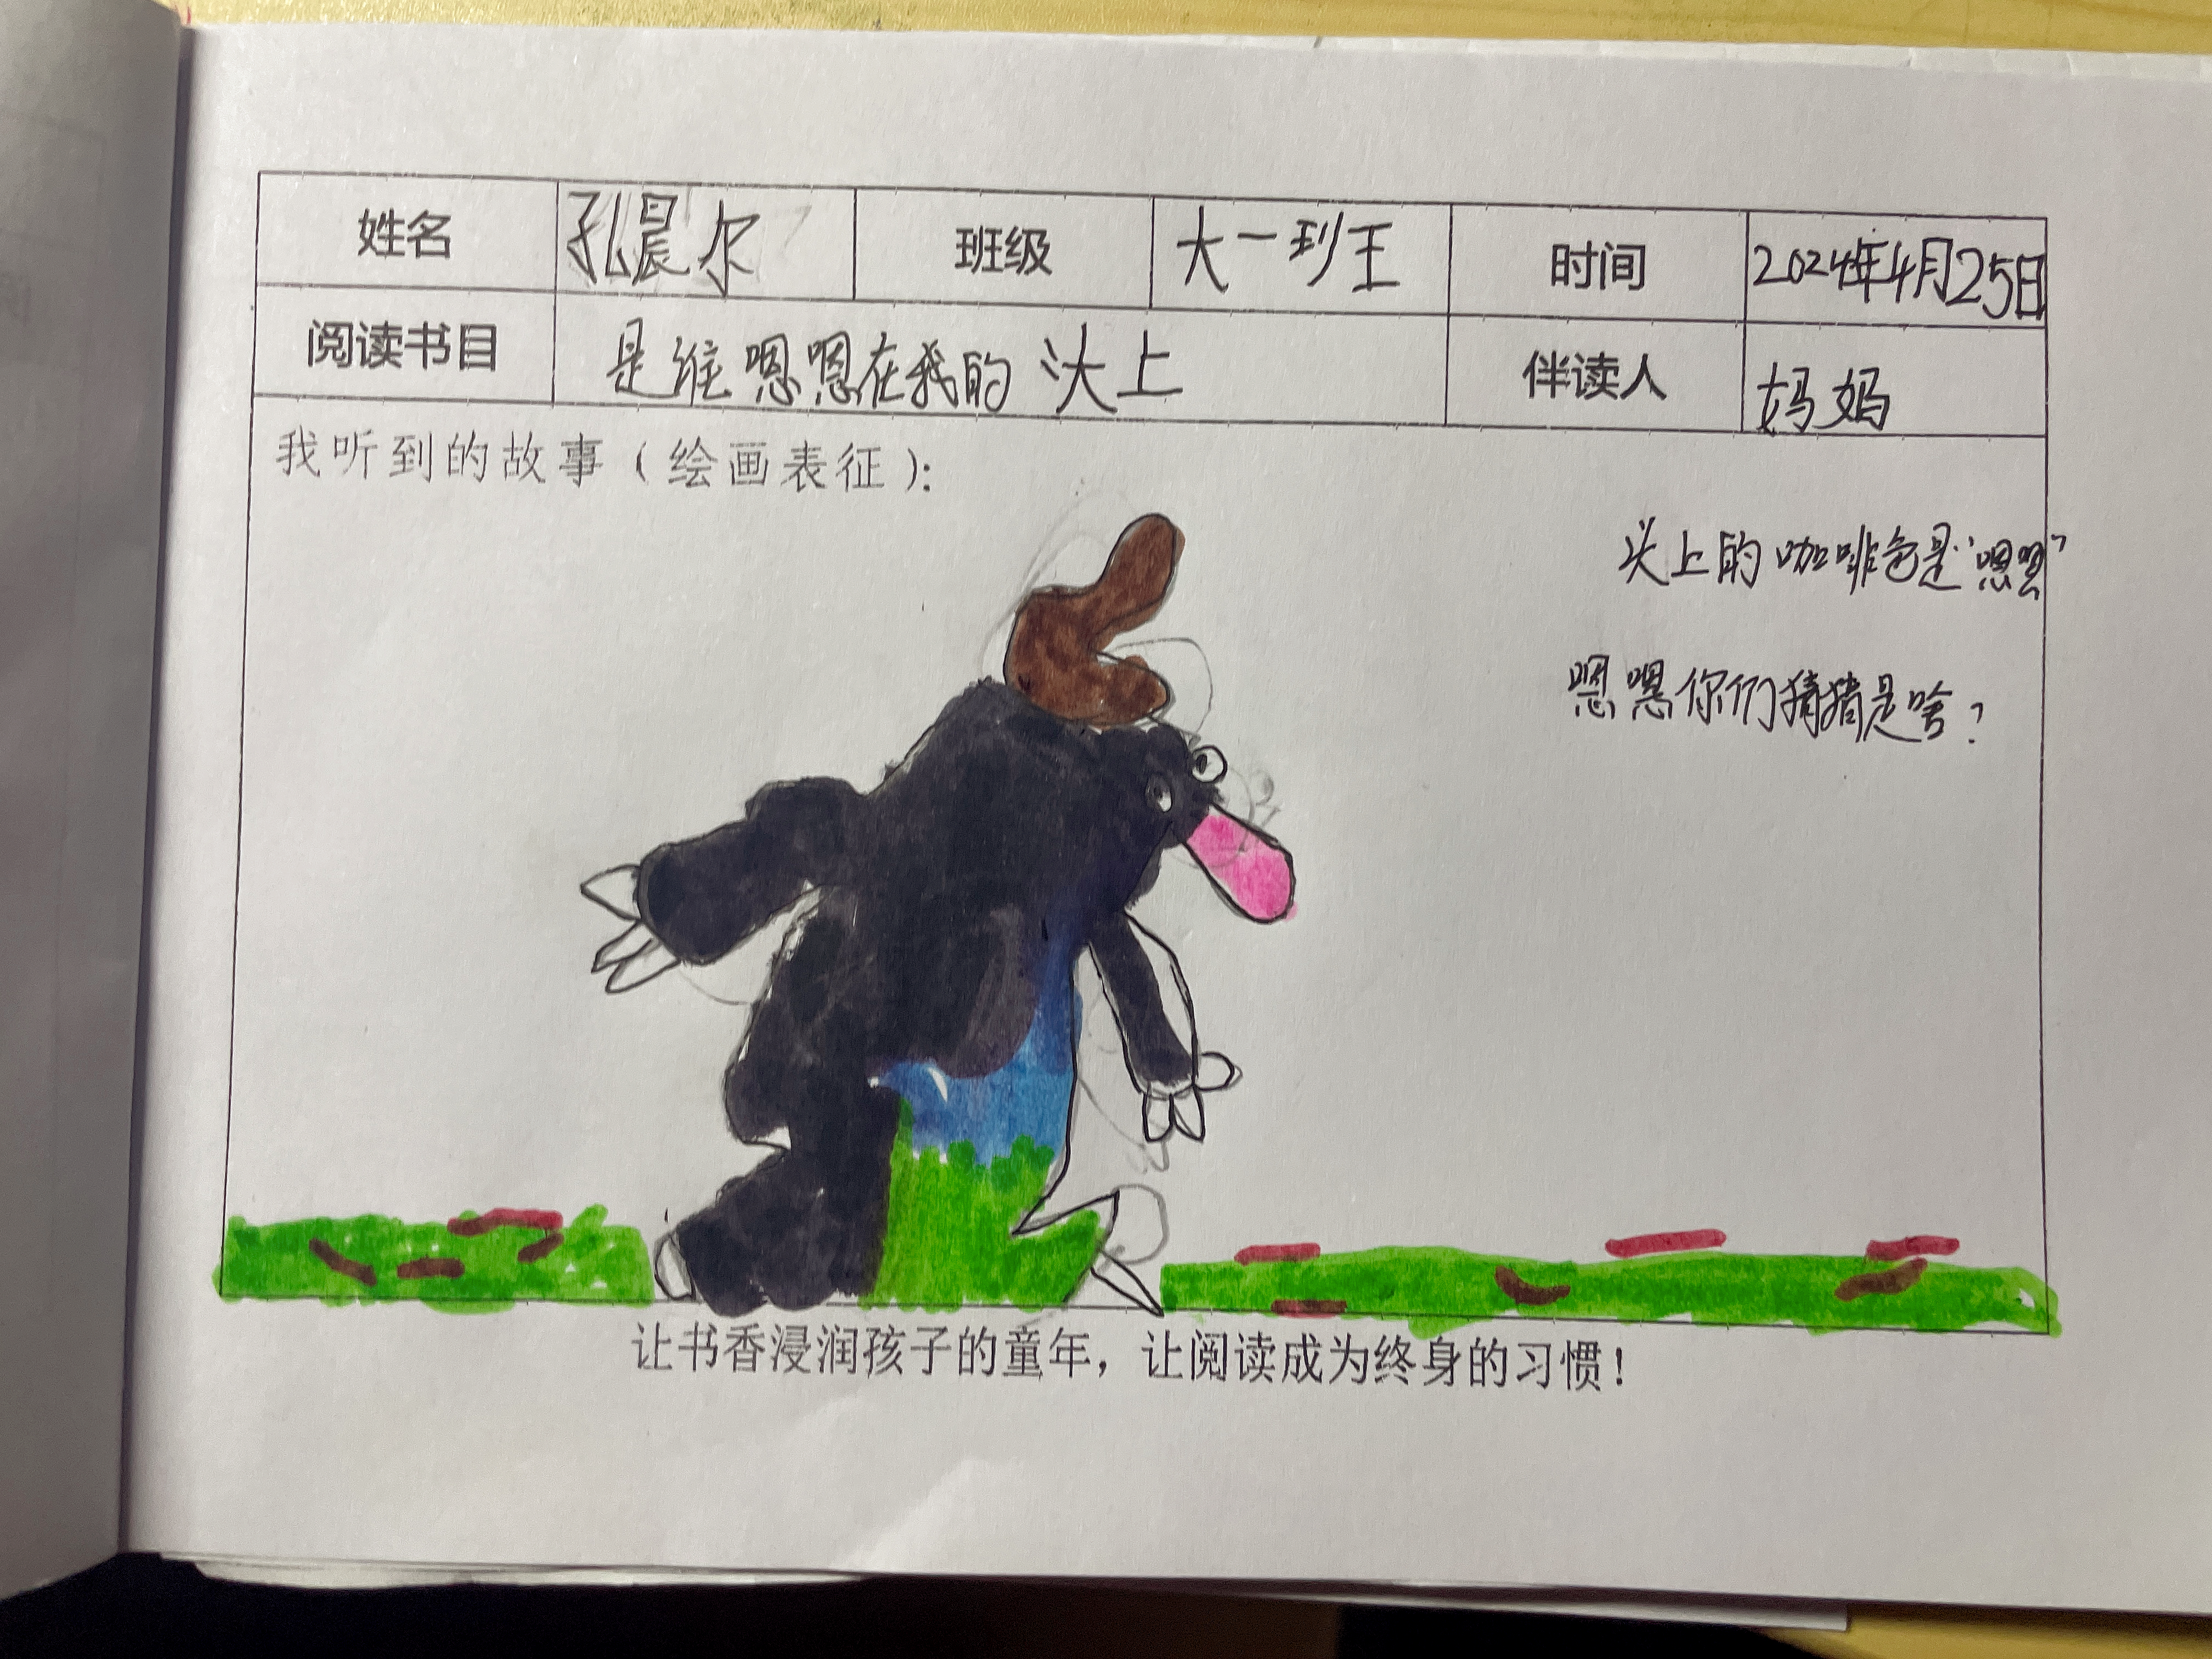 姓名 孔晨尔 班级 大一班 时间 2024年4月25日
阅读书目 是谁嗯嗯在我的头上 伴读人 妈妈
我听到的故事（绘画表征）：
头上的咖啡色是“嗯嗯”
嗯嗯你们猜猜是啥？
让书香浸润孩子的童年，让阅读成为终身的习惯！